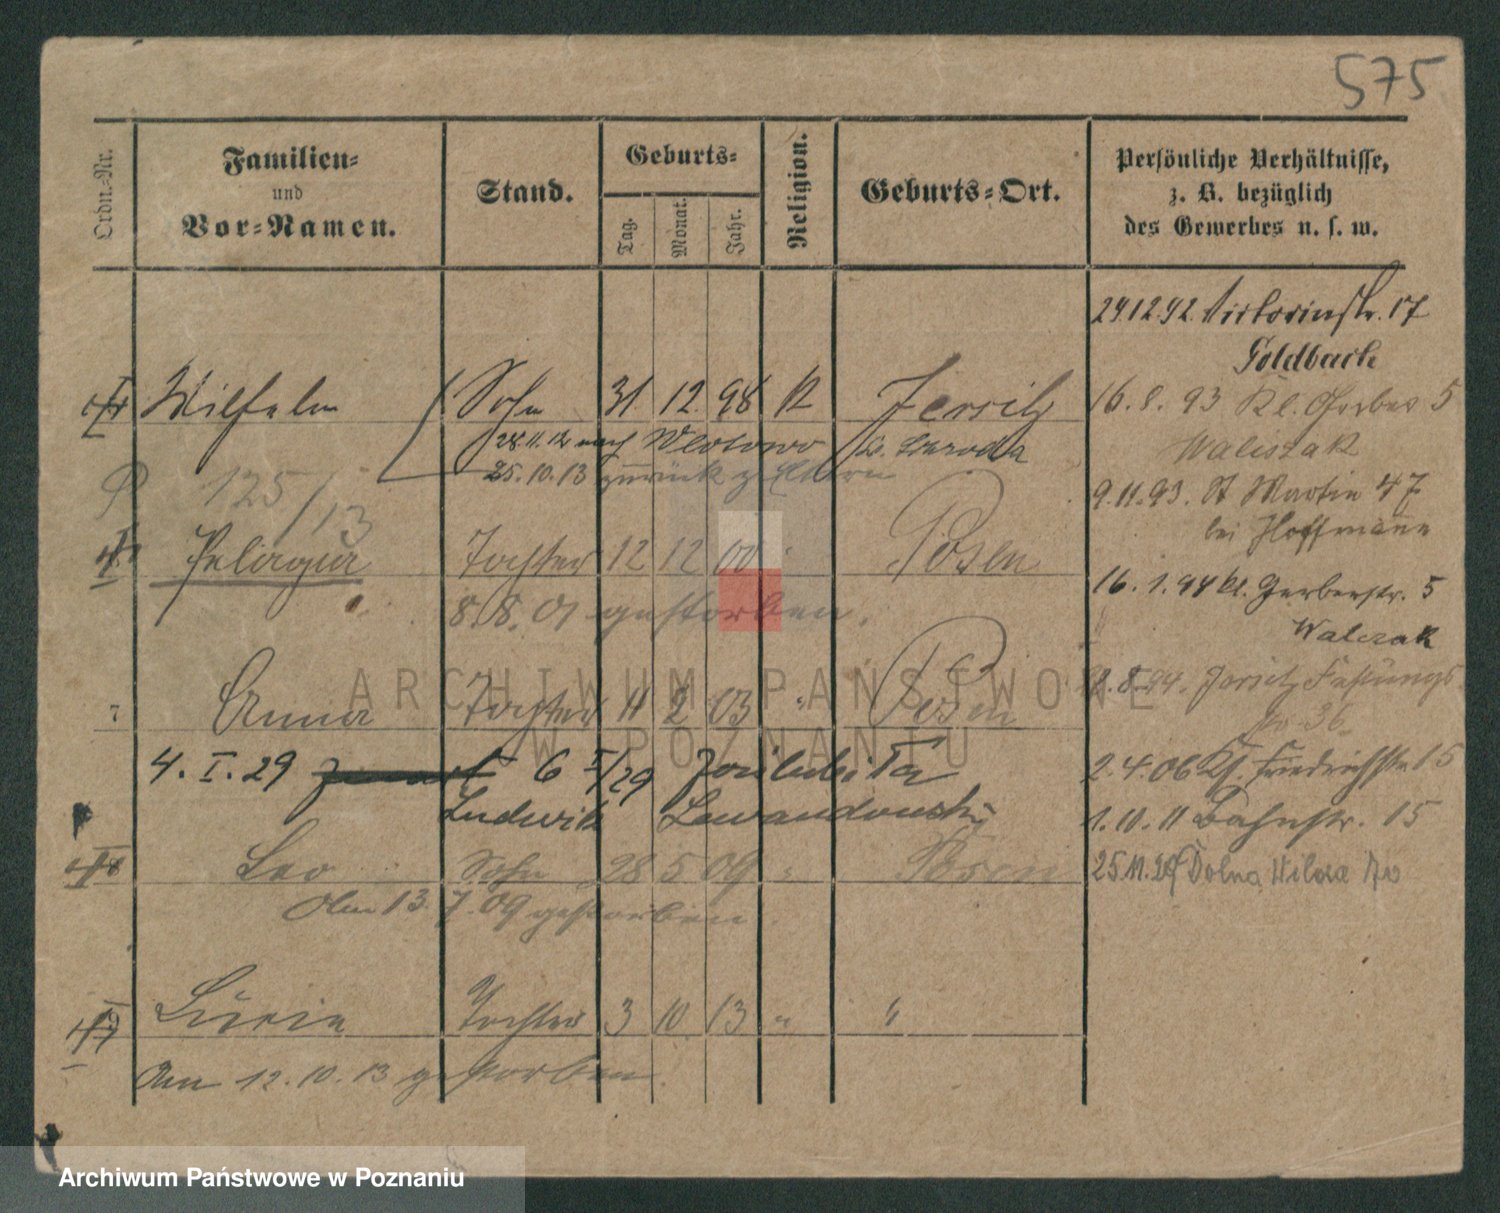 575
Ordn.-Nr.
Familien-
und
Vor-Namen.
Stand.
Geburts-
Tag.
Monat.
Jahr.
Religion.
Geburts-Ort.
Persönliche Verhältnisse,
z. B. bezüglich
des Gewerbes u. s. w.
24.12.92. Victoriastr. 17
Goldbach
Wilhelm Sohn 31 12. 98 K Jersitz
16. 8. 93 Kl. Gerber 5
28.11.12 nach Kr. Schroda
Waliszak
25.10.13 zurück z. Eltern
125/13
9.11.93. St Martin 47
bei Hoffmann
Pelagia Tochter 12 12 00 " Posen
16. 1. 94 Kl. Gerberstr. 5
8.8.01 gestorben.
Walczak
8.94. Jersitz
36
7 Anna Tochter 11 2 03 " Posen
4. I. 29 6 I/29
2.4.06 Friedrichstr 15
Ludwik Lewandowski
1.10.11 Bahnstr. 15
Leo Sohn 28 5 09 " Posen
25.11.29 Dolna Wilda
Am 13.7.09 gestorben.
Lucie Tochter 3 10 13 " "
Am 12.10.13 gestorben.
ARCHIWUM PAŃSTWOWE
W POZNANIU
Archiwum Państwowe w Poznaniu